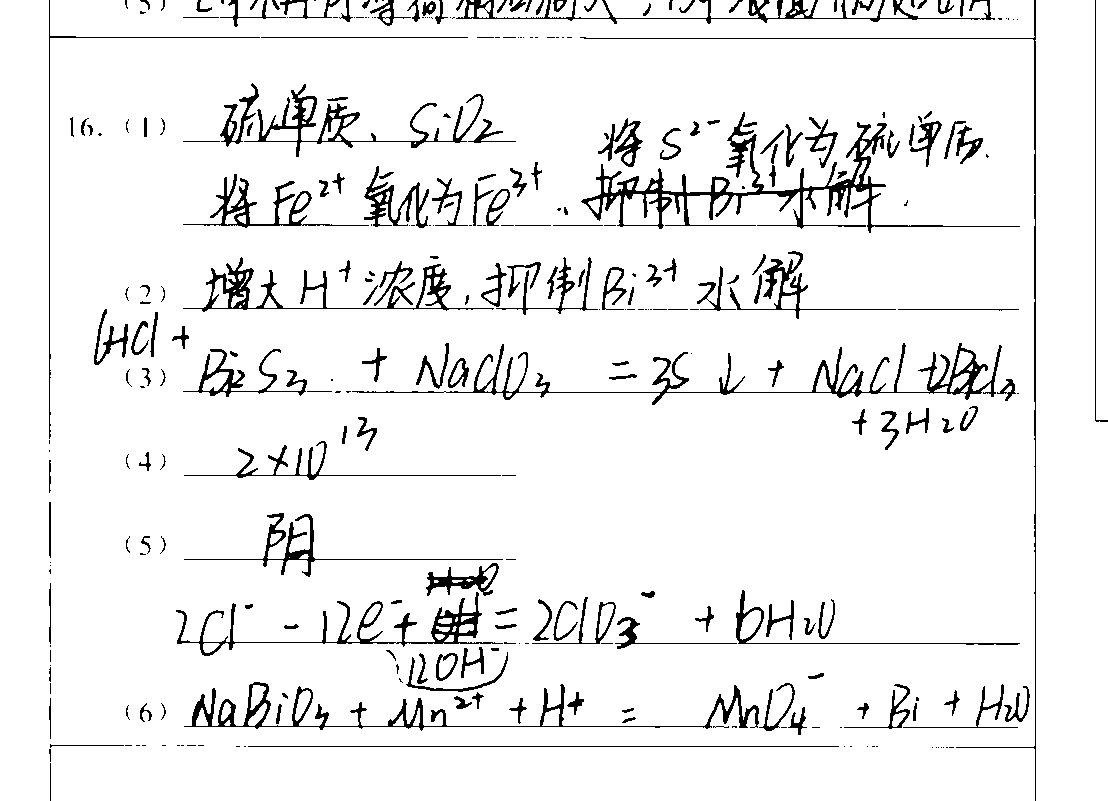 16.（1） 硫单质、SiO2
将 S²⁻ 氧化为硫单质.
将 Fe²⁺ 氧化为 Fe³⁺、抑制 Bi³⁺ 水解.
（2） 增大 H⁺ 浓度,抑制 Bi³⁺ 水解
6HCl +
（3） Bi2S3 + NaClO3 = 3S ↓ + NaCl +2BiCl3
+ 3H2O
（4） 2×10¹³
（5） 阴
2Cl⁻ - 12e⁻ + = 2ClO3⁻ + 6H2O
12OH⁻
（6） NaBiO3 + Mn²⁺ + H+ = MnO4⁻ + Bi + H2O